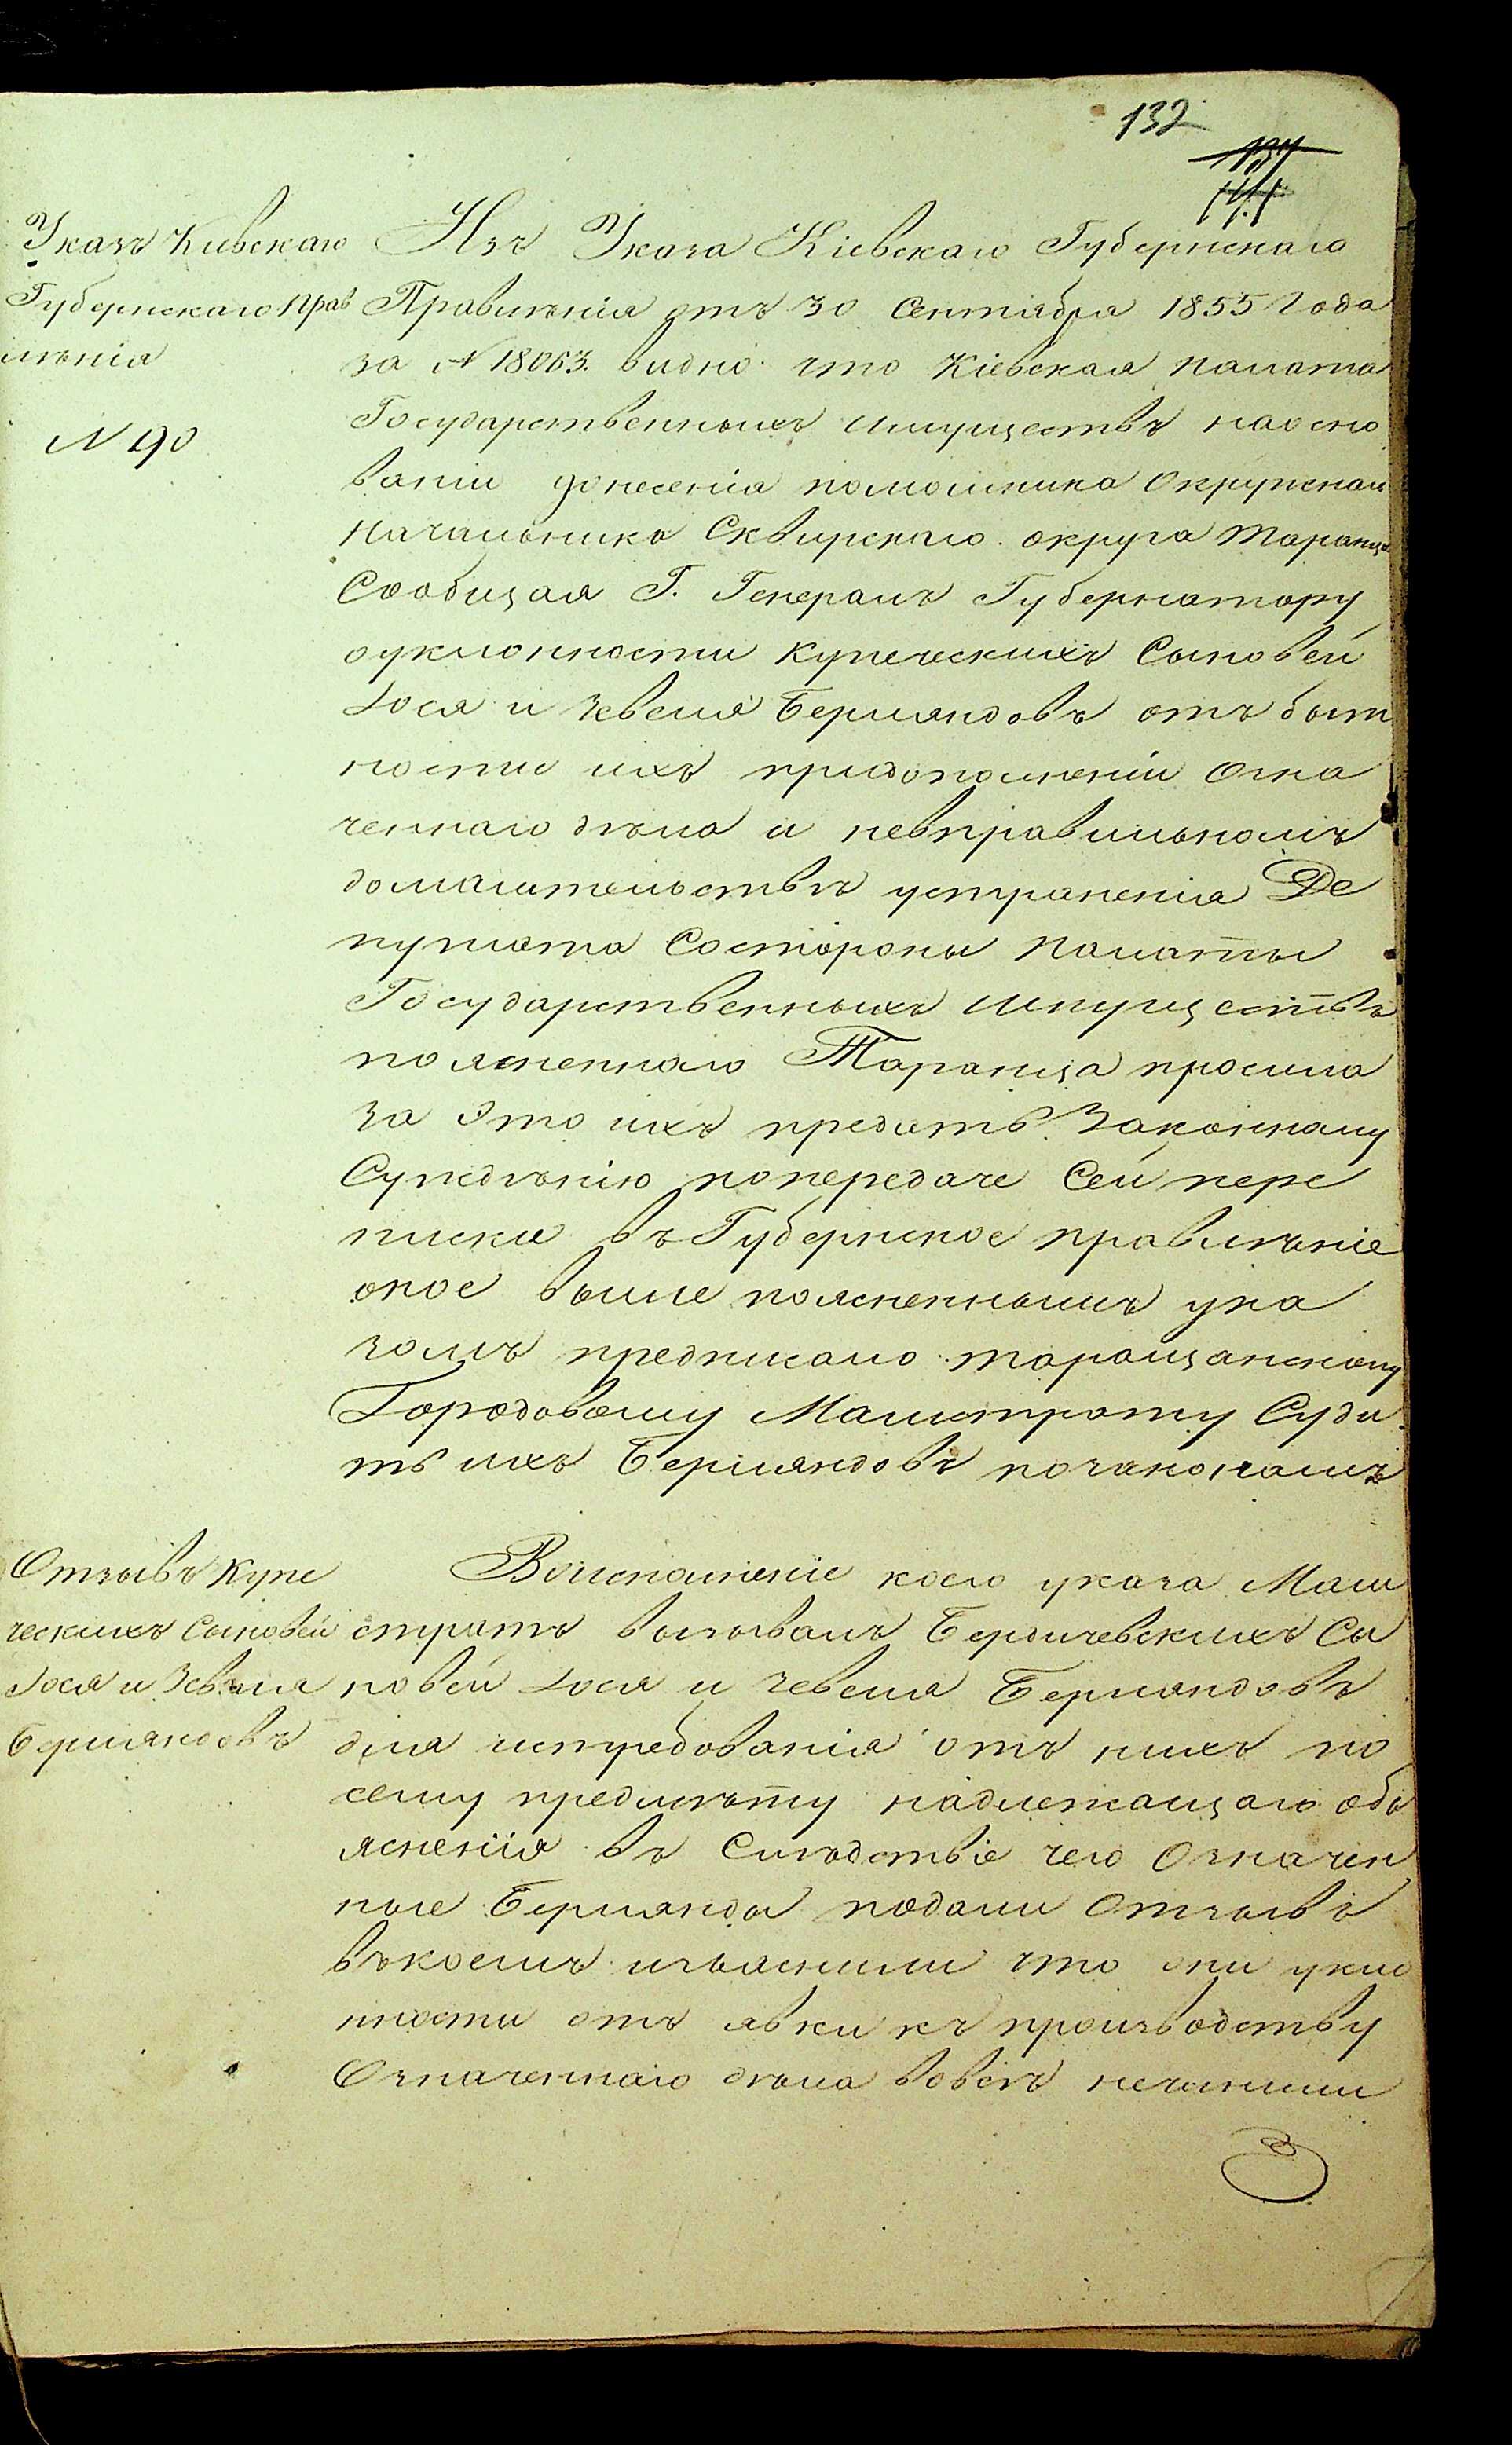 132
Указъ Кіевскаго
Губернскаго Прав
ленія
N 190
Изъ Указа Кіевскаго Губернскаго
Правленія отъ 30 Сентября 1855 года
за N 18063. видно что Кіевская Палата
Государственныхъ имуществъ наосно
ваніи донесенія помошника Окружнаго
Начальника Сквирскаго округа Таранца
Сообщая Г. Генералъ Губернатору
оуклонности Купеческихъ Сыновей
Іося и Зевеля Берляндовъ отъ быт
ности ихъ придополненіи Озна
ченнаго дѣла и невправильномъ
домагательствѣ устраненія Де
путата Состороны Палаты
Государственныхъ имуществъ
поясненнаго Таранца просила
за Это ихъ предать Законному
Сужденію попередаче Сей пере
писки въ Губернское правленіе
оное выше поясненнымъ ука
зомъ предписало таращанскому
Городовому Магистрату Суди
ть ихъ Берляндовъ позаконамъ
Отзывъ Купе
ческихъ Сыновей
Іося и Зевеля
Берляндовъ
Воисполненіе коего указа Маги
стратъ вызывалъ Бердичевскихъ Сы
новей Іося и Зевеля Берляндовъ
для истребованія отъ нихъ по
сему предмѣту надлежащаго объ
ясненія въ Слѣдствіе чего Означен
ные Берлянды подали Отзывъ
въкоемъ изъяснили что они укло
нности отъ явки къ производству
Означеннаго дѣла вовсе нечинили